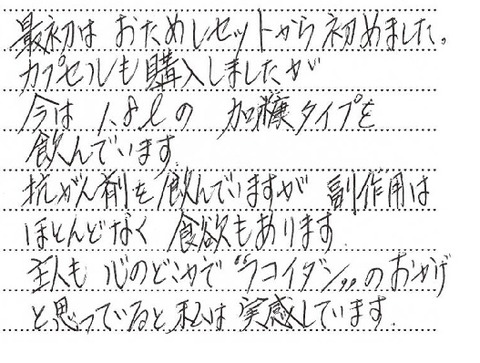 最初は おためしセットから初めました。
カプセルも購入しましたが
今は 1.8ℓの 加糖タイプを
飲んでいます
抗がん剤を飲んでいますが 副作用は
ほとんどなく 食欲もあります
主人も 心のどこかで〝フコイダン〟のおかげ
と思っていると私は 実感しています